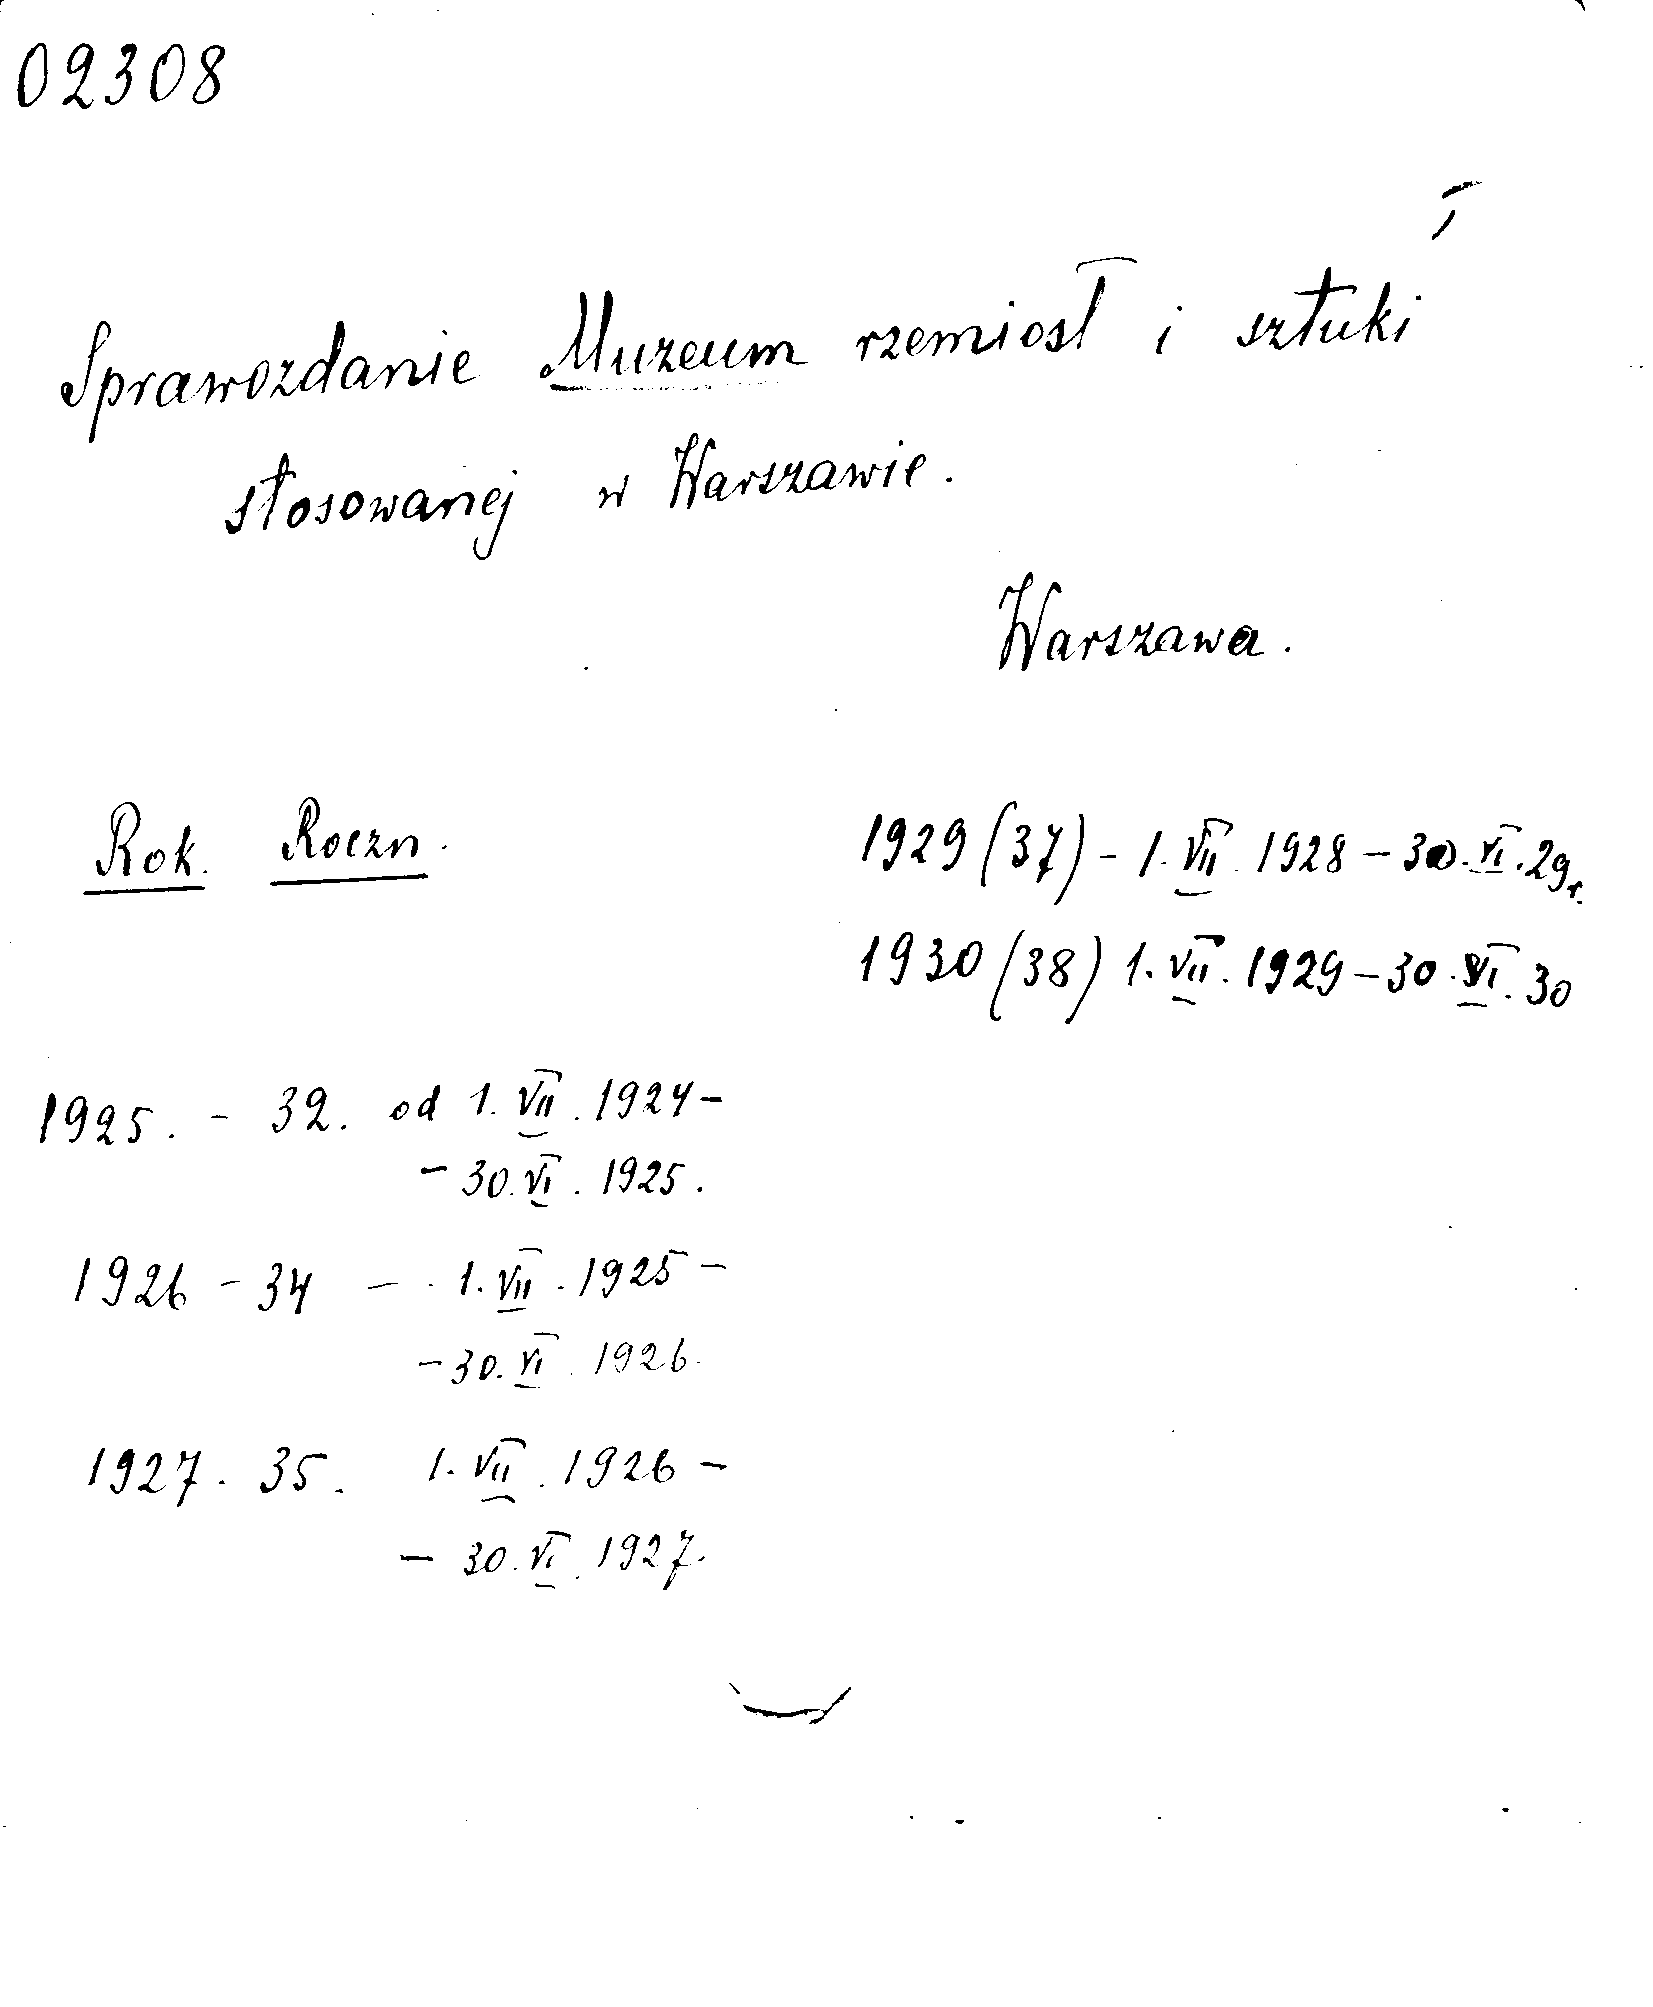 02308
Sprawozdanie Muzeum rzemiosł i sztuki
stosowanej w Warszawie.
Warszawa.
Rok. Roczn.
1925. - 32. od 1.VII.1924 -
- 30.VI.1925.
1926 - 34 - 1.VII.1925 -
- 30.VI.1926.
1927. 35. 1.VII.1926 -
- 30.VI.1927.
1929 (37) - 1.VII.1928 - 30.VI.29r.
1930 (38) 1.VII.1929 - 30.VI.30